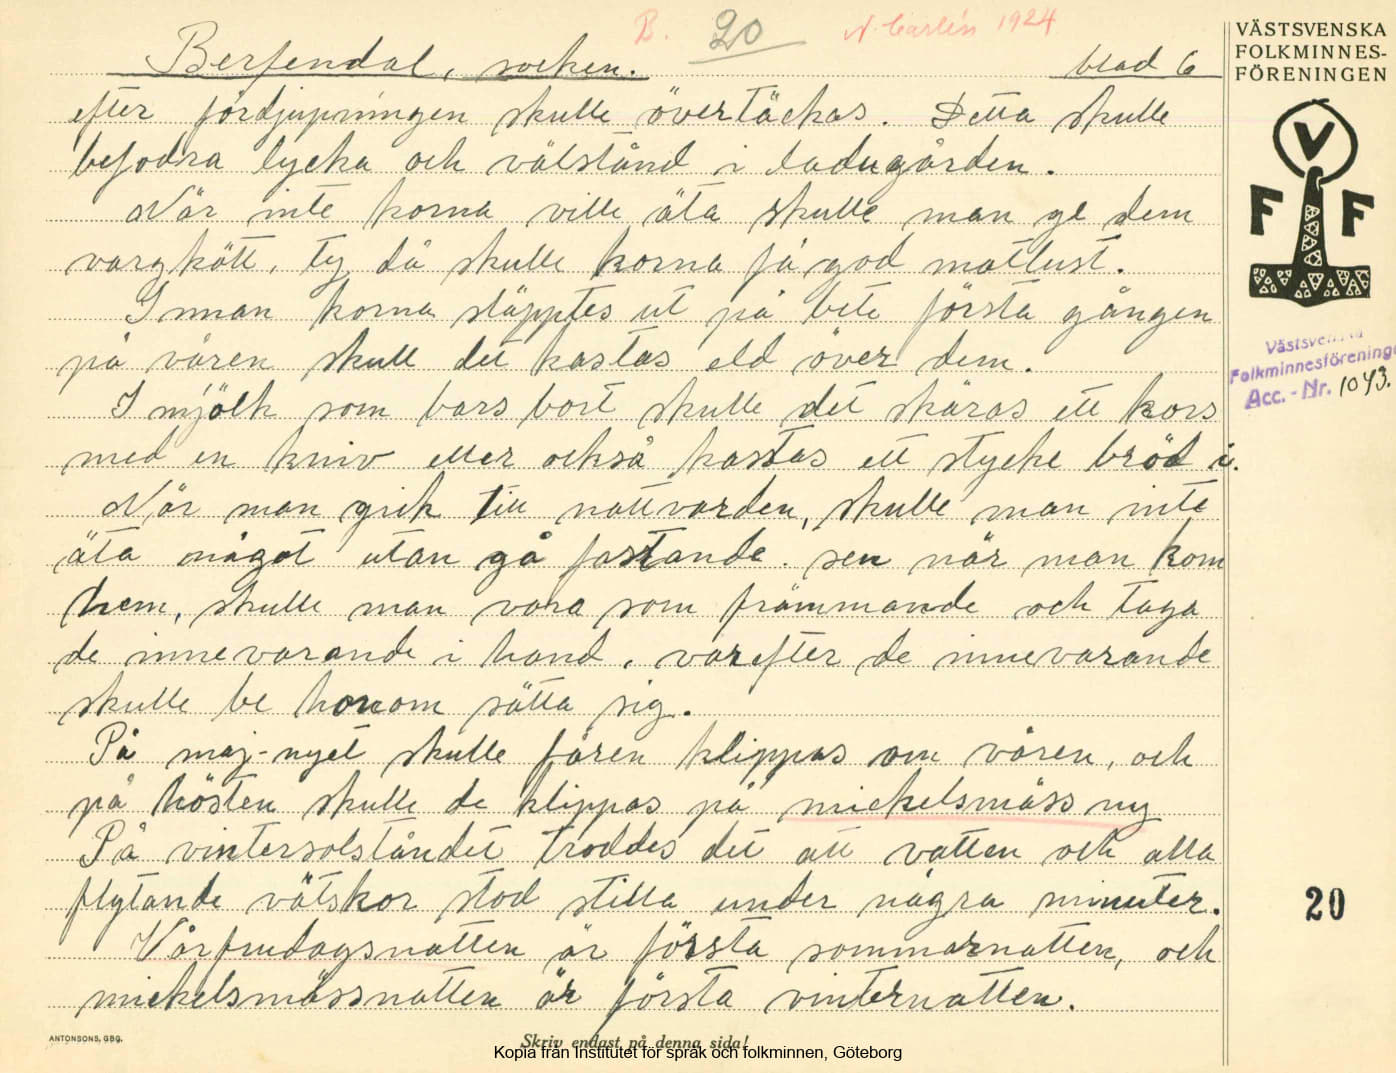 B. 20 N. Carlén 1924
Berfendal, socken. blad 6
efter fördjupningen skulle övertäckas. Detta skulle
befodra lycka och välstånd i ladugården.
När inte korna ville äta skulle man ge dem
vargkött, ty då skulle korna få god matlust.
Innan korna släpptes ut på bete första gången
på våren skull det kastas eld över dem.
I mjölk som bars bort skulle det skäras ett kors
med en kniv eller också kastas ett stycke bröd i.
När man gick till nattvarden, skulle man inte
äta något utan gå fastande. sen när man kom
hem, skulle man vara som främmande och taga
de innevarande i hand, varefter de innevarande
skulle be honom sätta sig.
På maj-nyet skulle fåren klippas om våren, och
på hösten skulle de klippas på mickelsmäss ny
På vintersolståndet troddes det att vatten och alla
flytande vätskor stod stilla under några minuter.
Vårfrudagsnatten är första sommarnatten, och
mickelsmässnatten är första vinternatten.
VÄSTSVENSKA
FOLKMINNES-
FÖRENINGEN
V
F F
Västsvenska
Folkminnesföreningen
Acc.-Nr. 1043.
20
ANTONSONS, GBG.
Skriv endast på denna sida!
Kopia från Institutet för språk och folkminnen, Göteborg